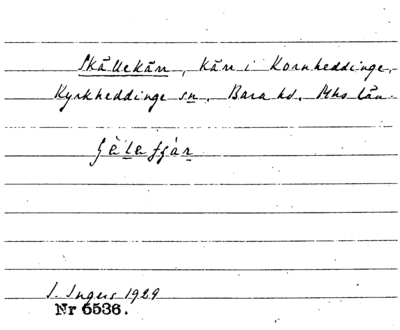 Skållekärr, kärr i Kornheddinge,
Kyrkheddinge sn. Bara hd. Mhs län.
I. Ingers 1929
Nr 5536.